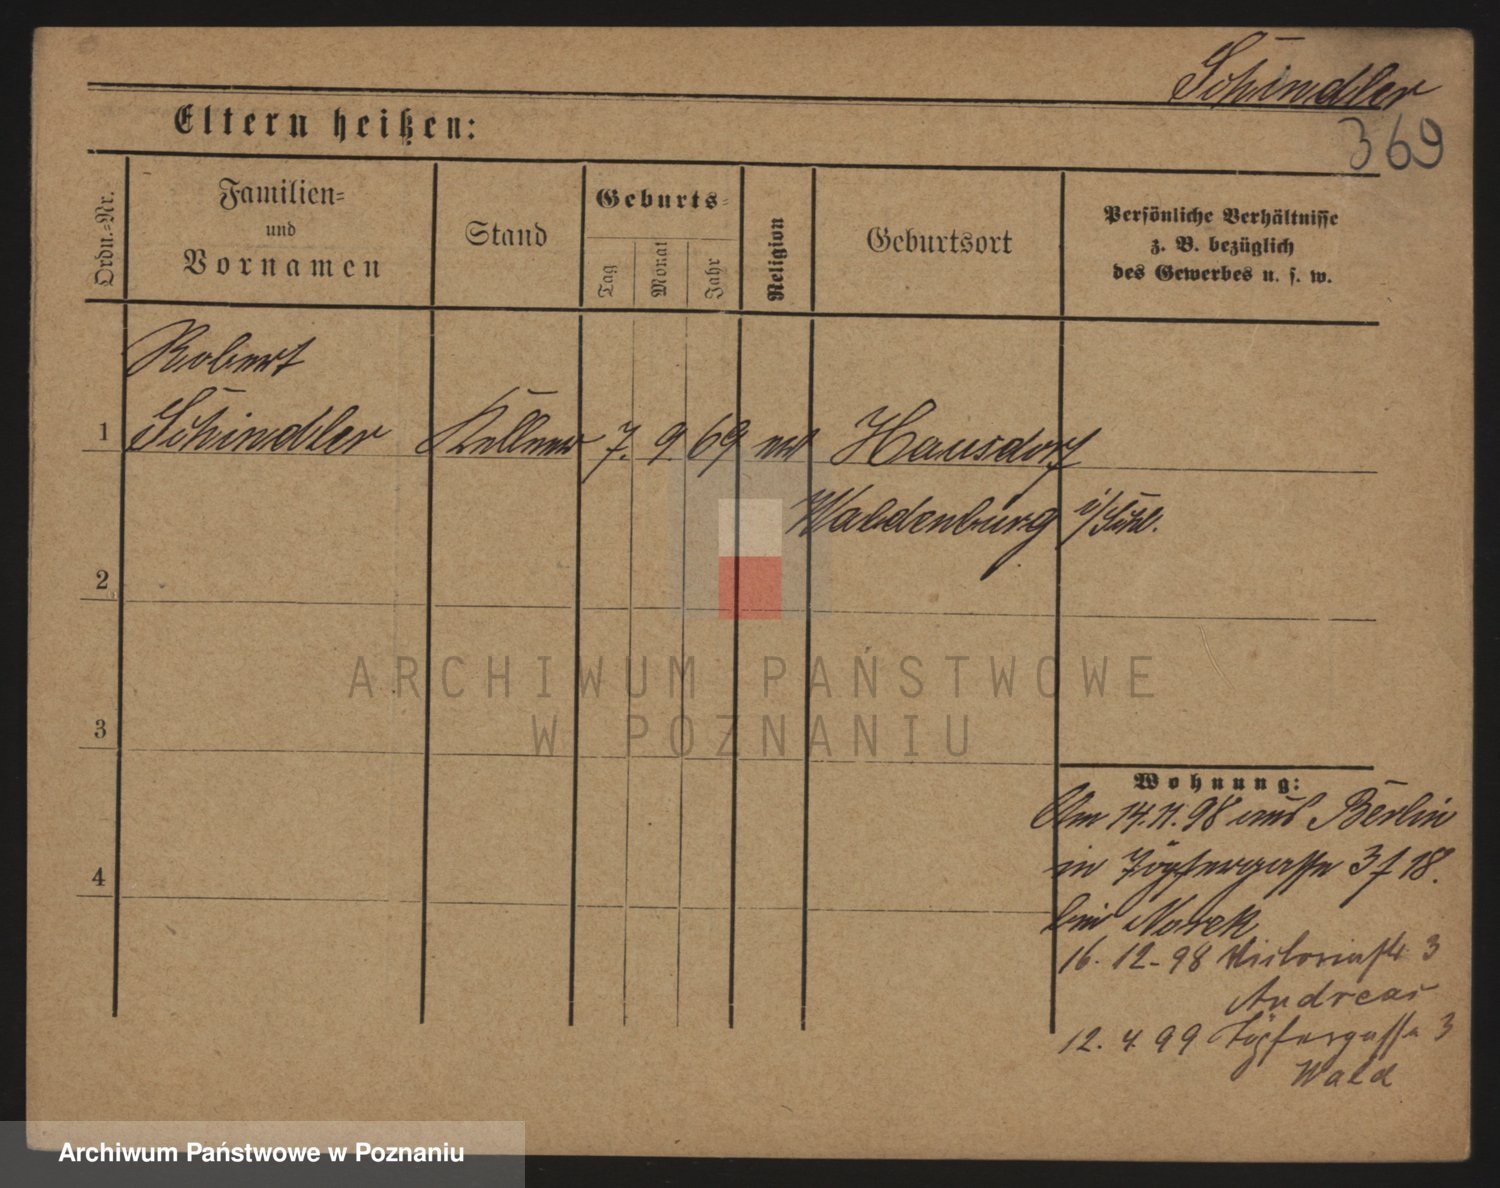 Schindler
369
Eltern heißen:
Ordn.-Nr.
Familien-
und
Vornamen
Stand
Geburts-
Tag
Monat
Jahr
Religion
Geburtsort
Persönliche Verhältnisse
z. B. bezüglich
des Gewerbes u. s. w.
Robert
1 Schindler Kellner 7. 9. 69 ev Hausdorf
Waldenburg i/Schl.
2
3
4
Wohnung:
Am 14.11.98 aus Berlin
in Töpfergasse 3 f 18.
bei Norek
16. 12. 98 Victoriastr 3
Andreas
12. 4. 99 Töpfergasse 3
Wald
ARCHIWUM PAŃSTWOWE
W POZNANIU
Archiwum Państwowe w Poznaniu